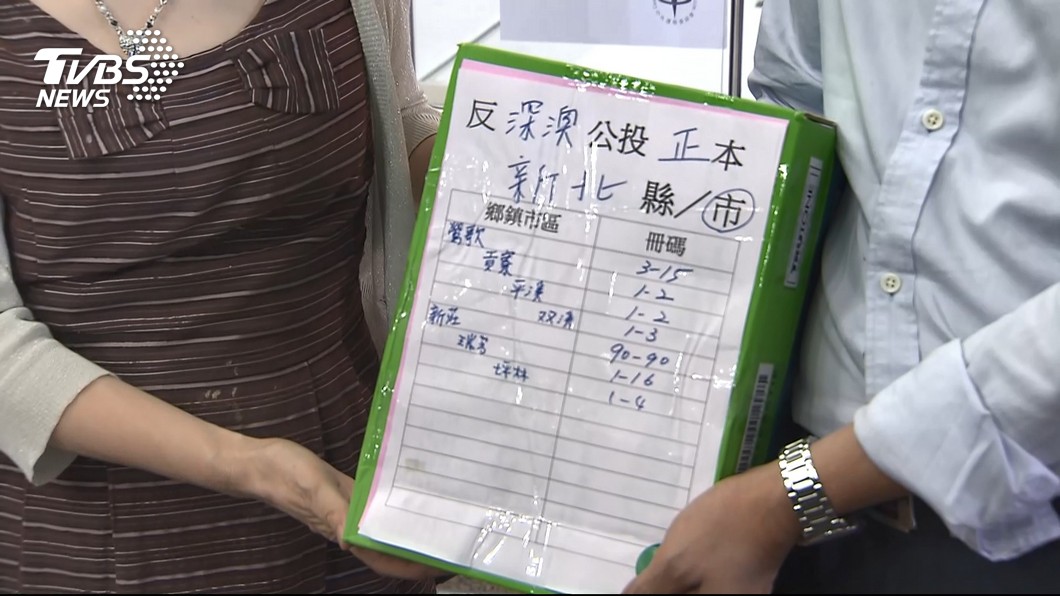 TVBS
NEWS
反深澳公投正本
新北縣/市
鄉鎮市區 冊碼
鶯歌 3-15
貢寮 1-2
平溪 1-2
双溪 1-3
新莊 90-90
瑞芳 1-16
坪林 1-4